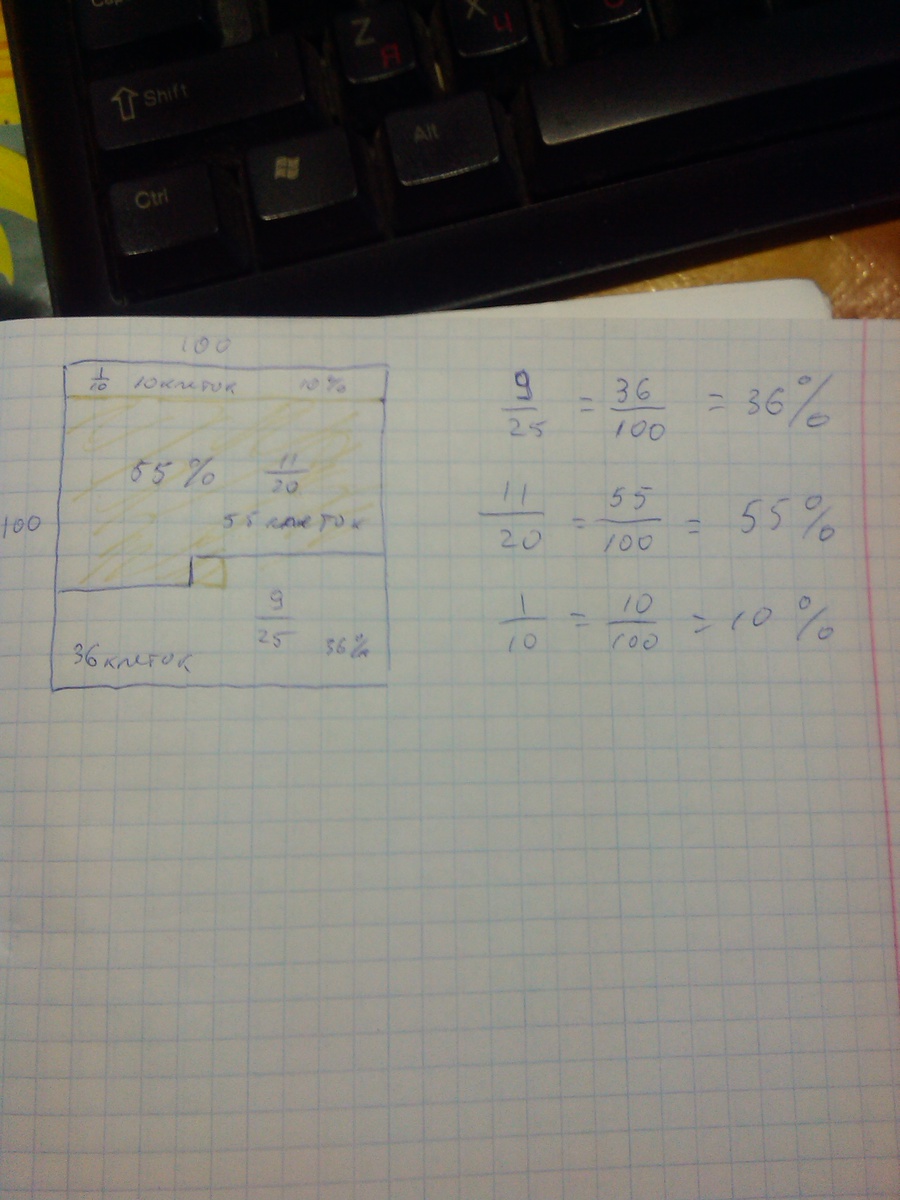 Z
Я
X
Ч
Shift
Alt
Ctrl
100
1/10 10 клеток 10%
55% 11/20
55 клеток
100
9/25
36 клеток 36%
9/25 = 36/100 = 36%
11/20 = 55/100 = 55%
1/10 = 10/100 = 10%